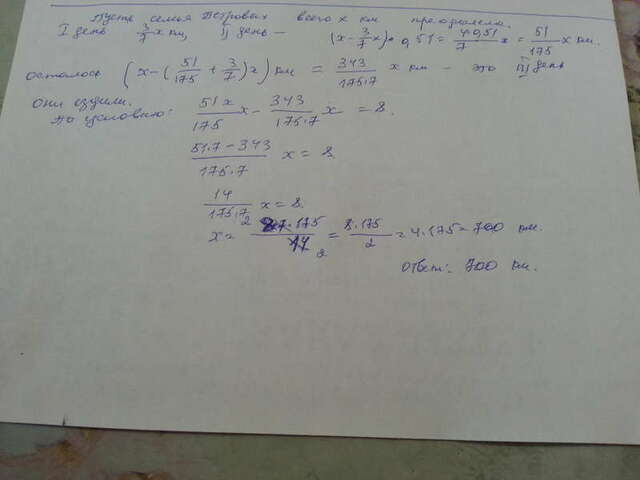 Пусть семья Петровых всего x км преодолела.
I день 3/7 x км, II день — (x - 3/7 x) · 0,51 = 4·0,51/7 x = 51/175 x км.
осталось (x - (51/175 + 3/7) x) км = 343/175·7 x км - это III день
они ехали.
По условию: 51x/175 x - 343/175·7 x = 8.
51·7 - 343/175·7 x = 8.
14/175·7 x = 8.
x = 8·7·175/14 2 = 8·175/2 = 4·175 = 700 км.
ответ: 700 км.